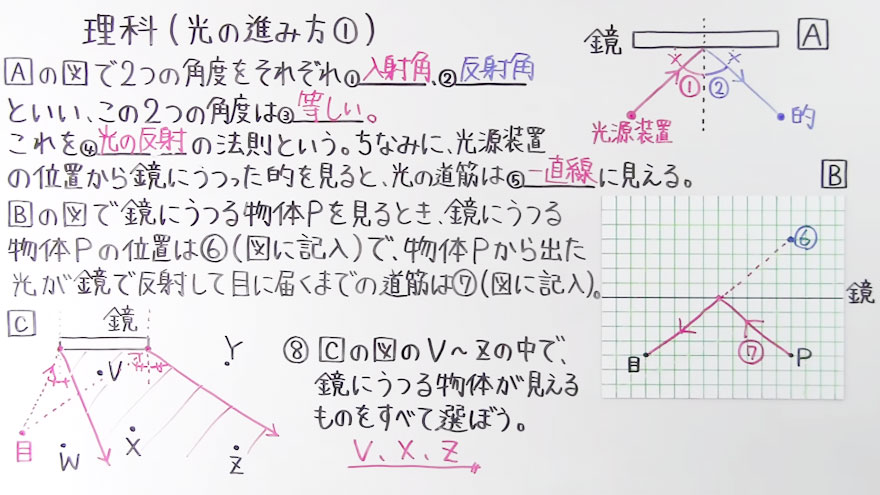 理科(光の進み方①)
Aの図で2つの角度をそれぞれ①入射角、②反射角
といい、この2つの角度は③等しい。
これを④光の反射の法則という。ちなみに、光源装置
の位置から鏡にうつった的を見ると、光の道筋は⑤一直線に見える。
Bの図で鏡にうつる物体Pを見るとき、鏡にうつる
物体Pの位置は⑥(図に記入)で、物体Pから出た
光が鏡で反射して目に届くまでの道筋は⑦(図に記入)。
鏡
A
×
×
①
②
光源装置
的
B
⑥
鏡
目
⑦
P
C
鏡
V
Y
目
W
X
Z
⑧Cの図のV~Zの中で、
鏡にうつる物体が見える
ものをすべて選ぼう。
V、X、Z